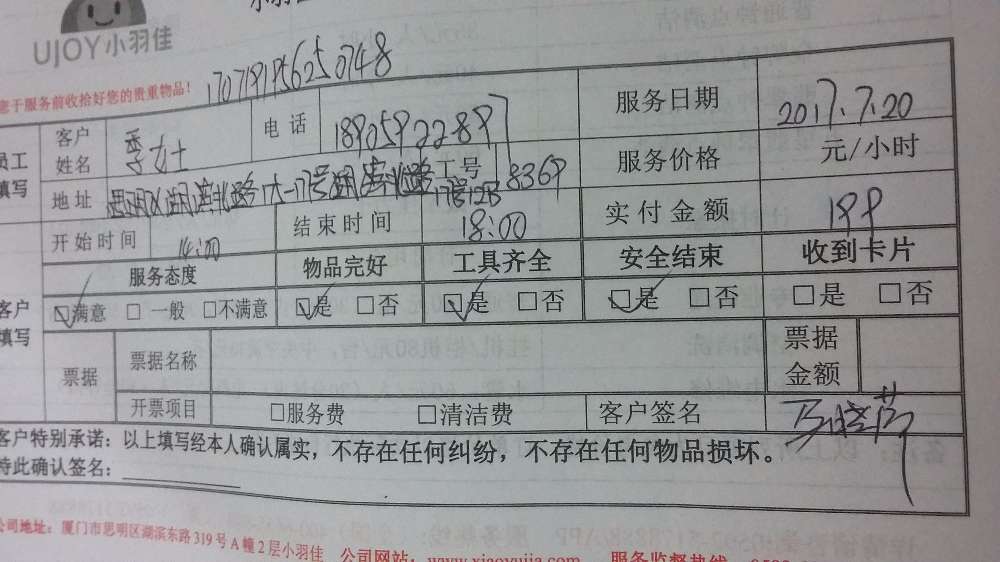 UJOY小羽佳
您于服务前收拾好您的贵重物品！
1707191956250748
员工填写 客户姓名 季女士 电话 18905922897 服务日期 2017.7.20
地址 思明区湖滨北路15-17号湖滨北路17号12B 工号 8369 服务价格 元/小时
开始时间 14:00 结束时间 18:00 实付金额 199
客户填写 服务态度 物品完好 工具齐全 安全结束 收到卡片
☑满意 □一般 □不满意 ☑是 □否 ☑是 □否 ☑是 □否 □是 □否
票据 票据名称 票据金额
开票项目 □服务费 □清洁费 客户签名
客户特别承诺：以上填写经本人确认属实，不存在任何纠纷，不存在任何物品损坏。
特此确认签名：
公司地址：厦门市思明区湖滨东路319号A幢2层小羽佳 公司网站：www.xiaoyujia.com 服务监督热线：